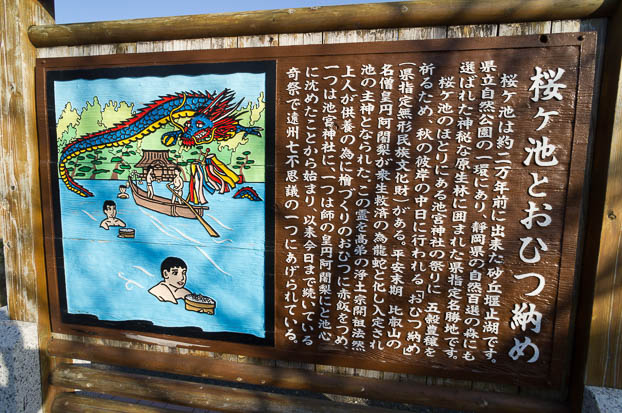 桜ヶ池とおひつ納め
桜ヶ池は約二万年前に出来た砂丘堰止湖です。
県立自然公園の一環にあり、静岡県の自然百選の森にも
選ばれた神秘な原生林に囲まれた県指定名勝地です。
桜ヶ池のほとりにある池宮神社の祭りに、五穀豊穣を
祈るため、秋の彼岸の中日に行われる「おひつ納め」
(県指定無形民族文化財)がある。平安末期、比叡山の
名僧皇円阿闍梨が衆生救済の為龍蛇と化し入定され
池の主神となられた。この霊を高弟の浄土宗開祖法然
上人が供養の為に檜づくりのおひつに赤飯をつめ、
一つは池宮神社に、一つは師の皇円阿闍梨にと池心
に沈めたことから始まり、以来今日まで続いている
奇祭で遠州七不思議の一つにあげられている。